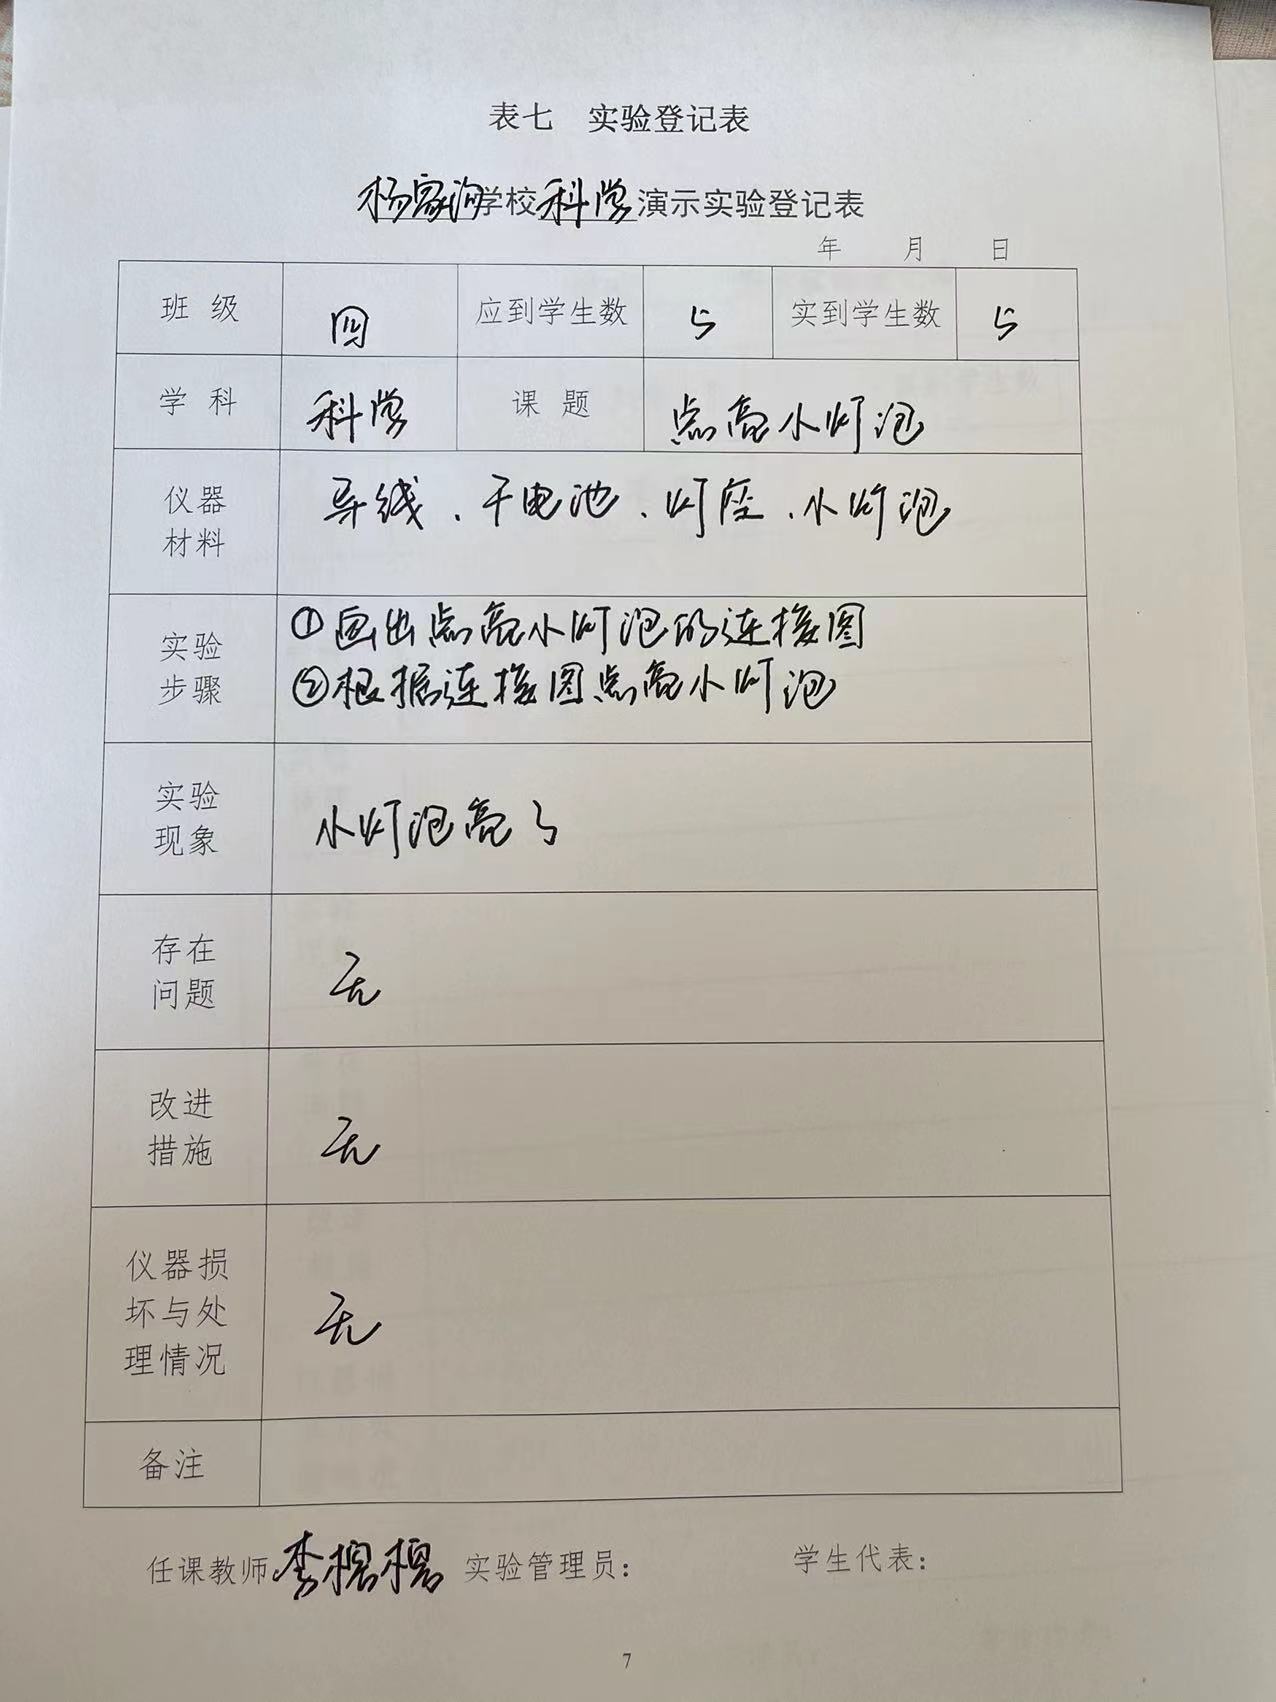 表七 实验登记表
杨家沟学校科学演示实验登记表
年 月 日
班 级 四 应到学生数 5 实到学生数 5
学 科 科学 课 题 点亮小灯泡
仪器
材料
导线、干电池、灯座、小灯泡
实验
步骤
①画出点亮小灯泡的连接图
②根据连接图点亮小灯泡
实验
现象
小灯泡亮了
存在
问题
无
改进
措施
无
仪器损
坏与处
理情况
无
备注
任课教师 李 实验管理员： 学生代表：
7